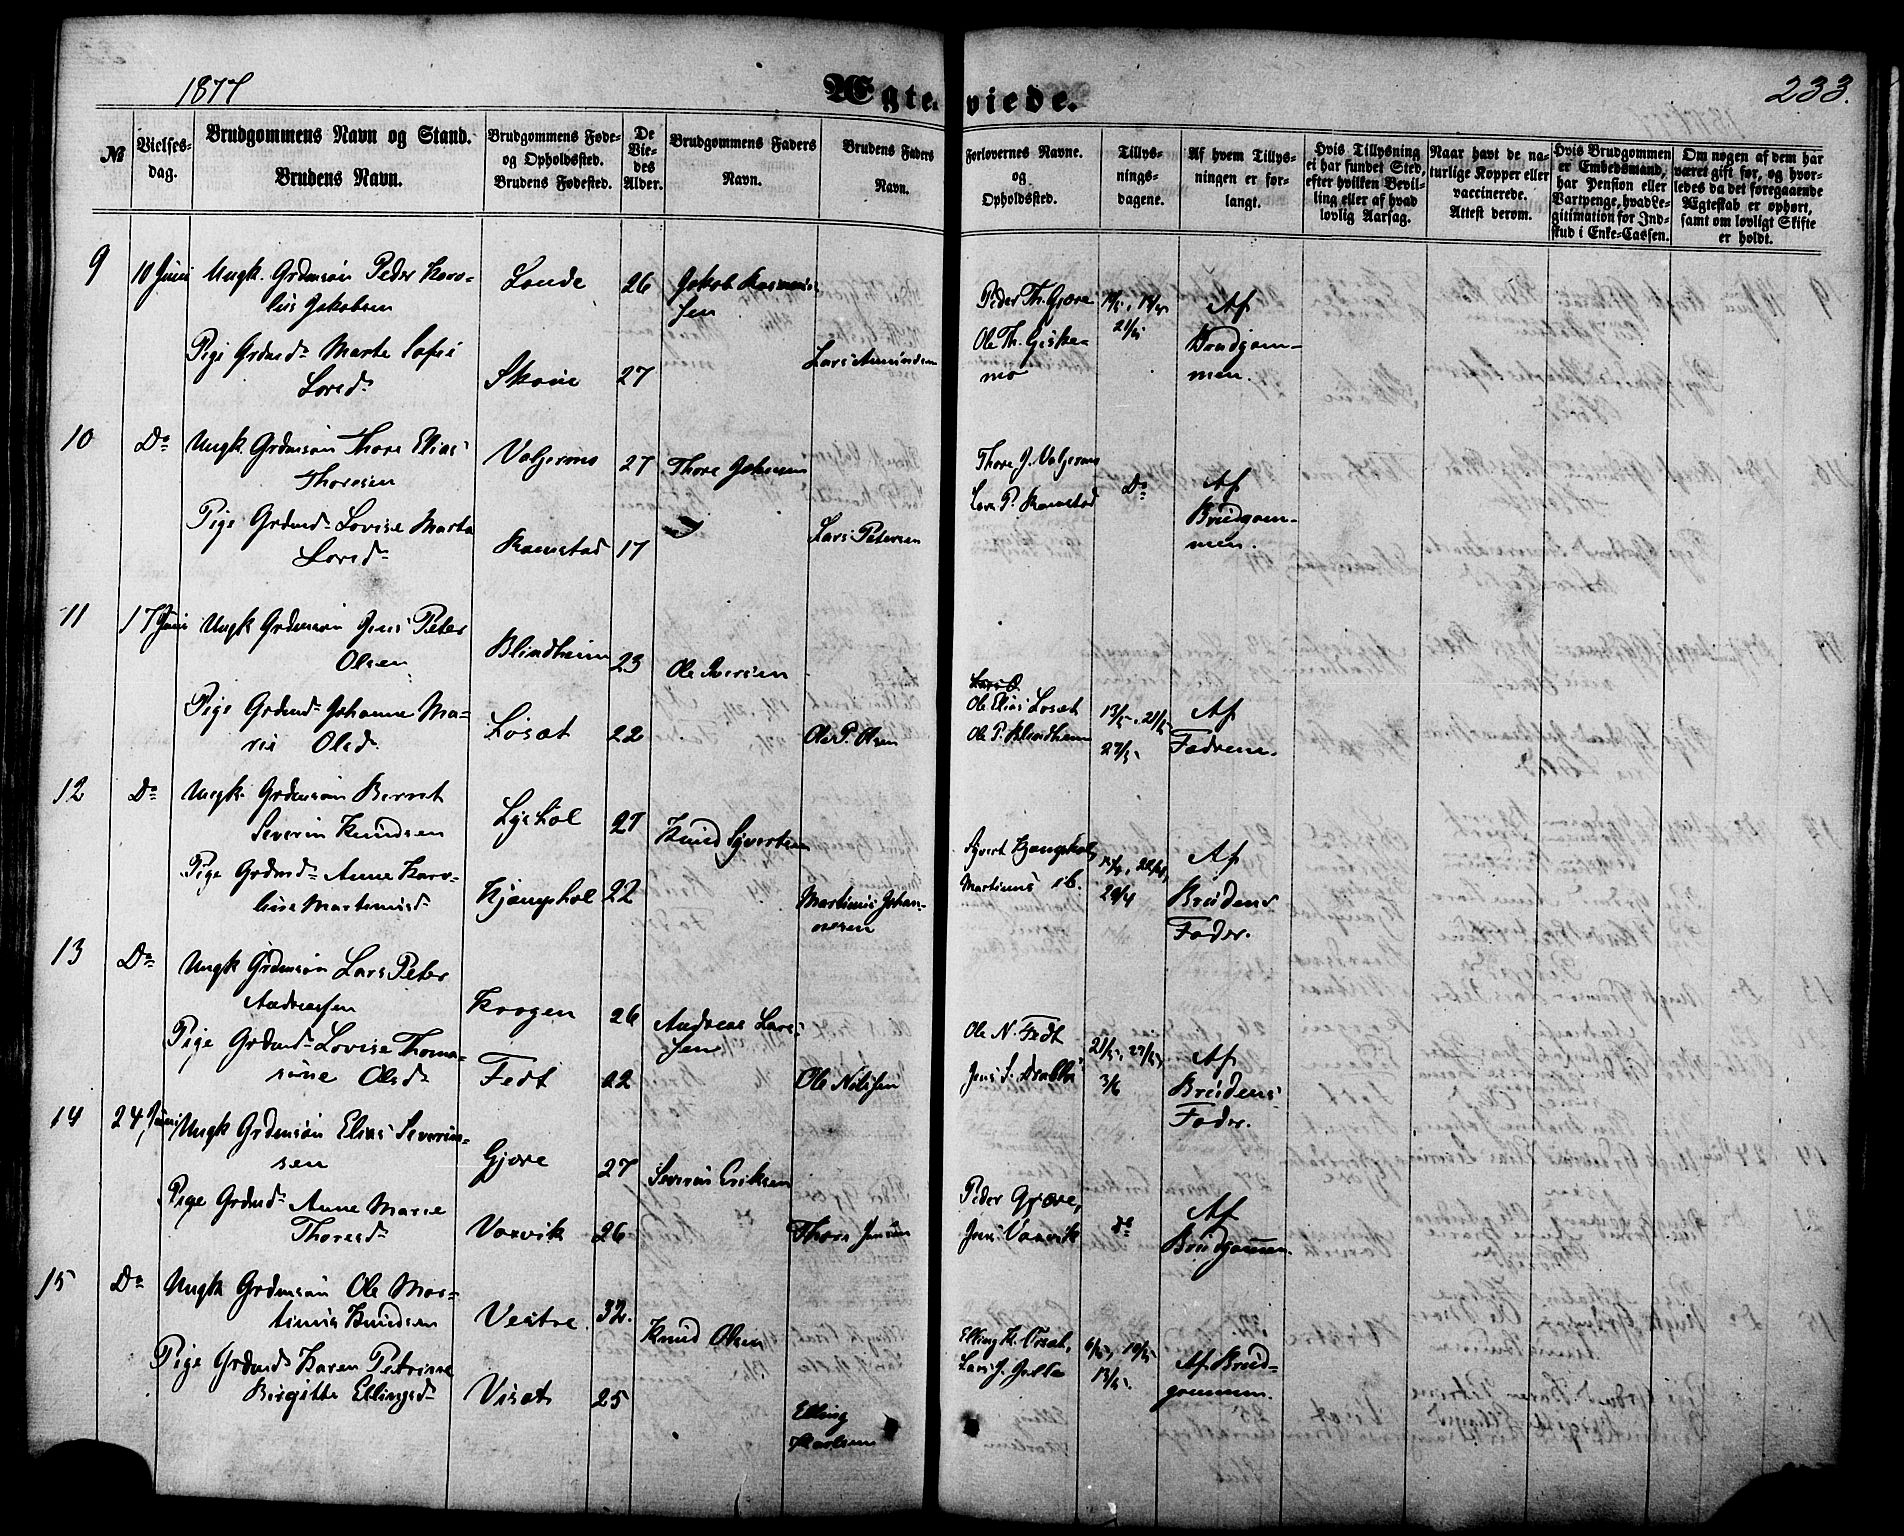 1877
Ægtevviede.
233.
№
Vielses-
dag.
Brudgommens Navn og Stand.
Brudens Navn.
Brudgommens Føde-
og Opholdssted.
Brudens Fødested.
De
Vie-
des
Alder.
Brudgommens Faders
Navn.
Brudens Faders
Navn.
Forlovernes Navne.
og
Opholdssted.
Tillys-
nings-
dagene.
Af hvem Tillys-
ningen er for-
langt.
Hvis Tillysning
ei har fundet Sted,
efter hvilken Bevil-
ling eller af hvad
lovlig Aarsag.
Naar havt de na-
turlige Kopper eller
vaccinerede.
Attest derom.
Hvis Brudgommen
er Embedsmand,
har Pension eller
Vartpenge, hvad Le-
gitimation for Ind-
skud i Enke-Cassen.
Om nogen af dem har
været gift før, og hvor-
ledes da det foregaaende
Ægteskab er ophørt,
samt om lovligt Skifte
er holdt.
9 10 Juni Ungk. Grdmsøn Peder Karo-
lius Jakobsen
26 Jakob Rasmus-
sen
Peder Th. Gjøre
Ole Th. Giske-
mo
21/5
Af
Brudgom-
men.
Pige Grdmd. Marte Sofie
Larsd.
27 Lars Amundsen
10 Do Ungk. Grdmsøn Thore Elias
Thoresen
Valgermo 27 Thore Johnsen
Thore J. Valgermo
Lars P. Ramstad
Do
Af
Brudgom-
men.
Pige Grdmd. Lovise Marta
Larsd.
Ramstad 17 Lars Petersen
11 17 Juni Ungk Grdmsøn Jens Peter
Olsen
Blindheim 23 Ole Iversen
Ole Elias Løsæt
Ole P. Blindheim
13/5, 21/5
27/5
Af
Fadrene.
Pige Grdmd. Johanne Ma-
rie Olsd.
Løsæt 22 Ole P. Olsen
12 Do Ungk. Grdmsøn Bernt
Severin Knudsen
27 Knud Syvertsen
Martinus ib.
29/4
Af
Brudens
Fader.
Pige Grdmd. Anne Karo-
line Martinusd.
22 Martinus Johan-
nesen
13 Do Ungk Grdmsøn Lars Peter
Andreassen
Krogen 26 Andreas Lars-
sen
Ole N. Fedt
21/5, 27/5
3/6
Af
Brudens
Fader.
Pige Grdmd. Lovise Thoma-
sine Olsd.
Fedt 22 Ole Nilssen
14 24 Juni Ungk Grdmsøn Elias Severin-
sen
Gjøre 27 Severin Eriksen
Peder Gjøre,
Jens Vaxvik
do
Af
Brudgommen.
Pige Grdmd. Anne Marie
Thoresd.
Vaxvik 26 Thore Jensen
15 Do Ungk Grdmsøn Ole Mar-
tinus Knudsen
Vestre 32. Knud Olsen
13/5.
Af Brud-
gommen.
Pige Grdmd. Karen Petrine
Birgitte Ellingsd.
25 Elling
Karlsen